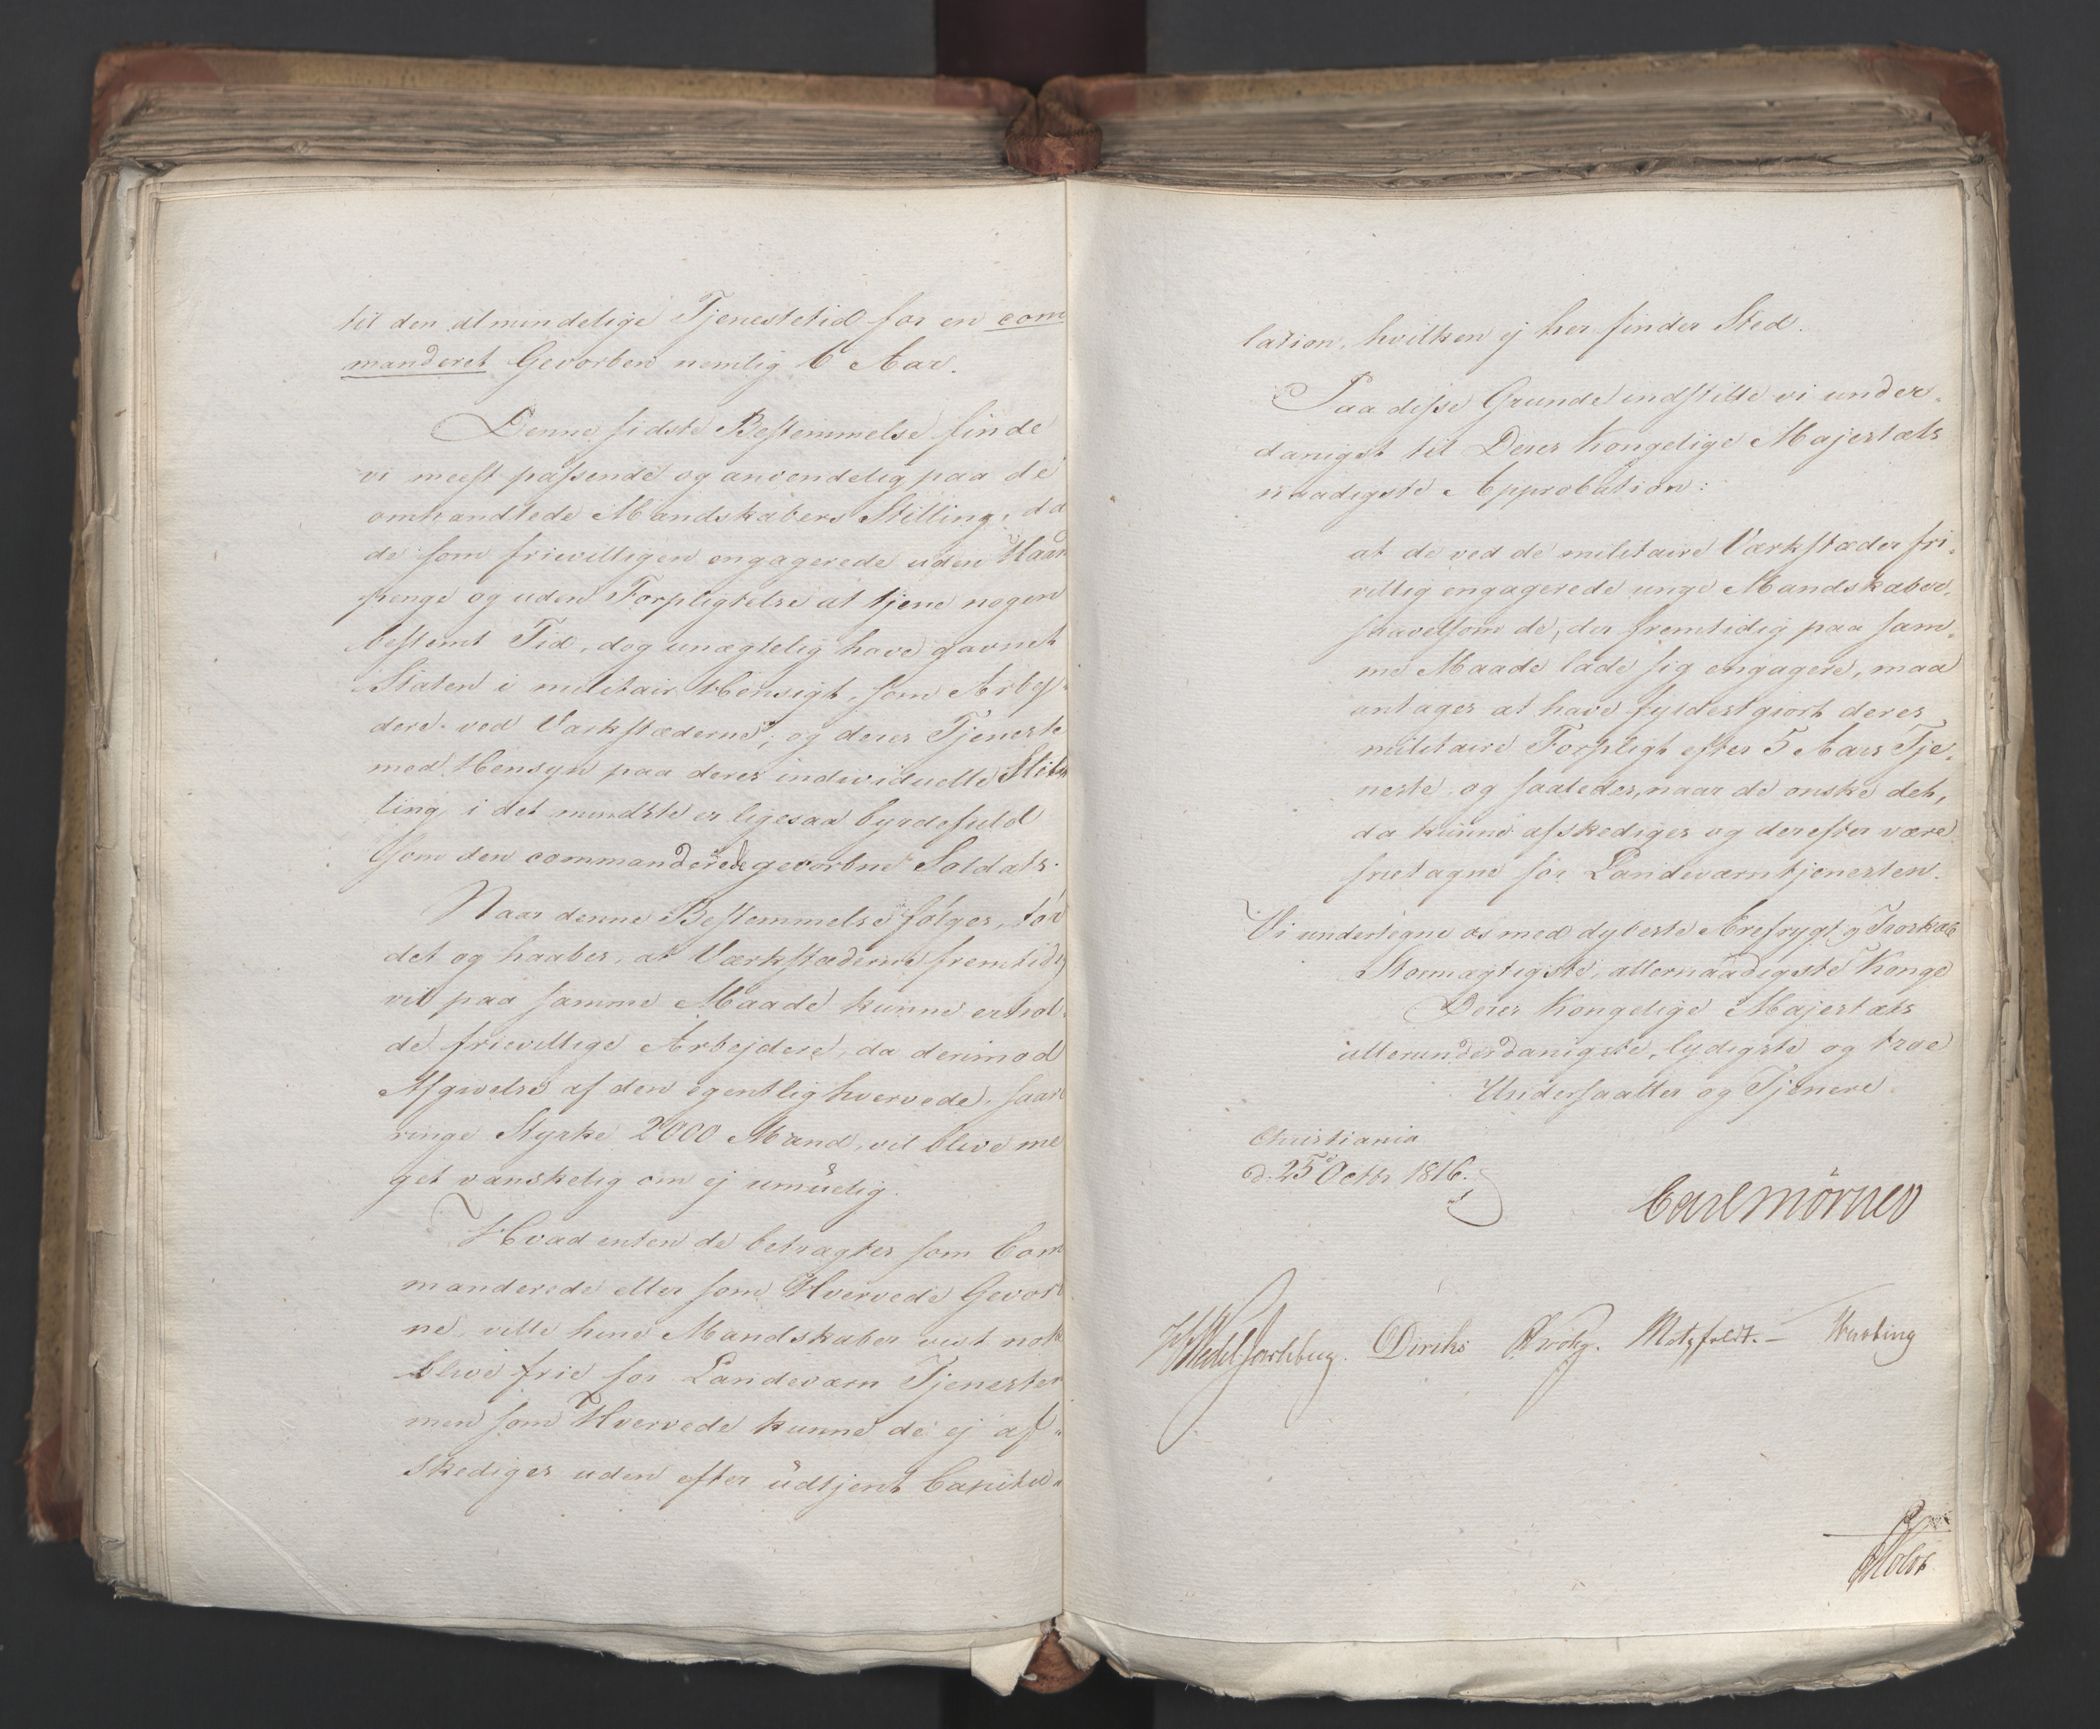 til den almindelige Tjenestetid for en com
manderet Gevorben nemlig 6 Aar.
Denne sidste Bestemmelse finde
vi meest passende og anvendelig paa de
omhandlede Mandskabers Stilling, da
de som frievilligen engagerede uden Haand
penge og uden Forpligtelse at tjene nogen
bestemt Tid, dog unægtelig have gavnet
Staten i militair Hensigt, som Arbej-
dere ved Værkstæderne, og deres Tjeneste
med Hensyn paa deres individuelle Stil
ling, i det mindste er ligesaa byrdefuld
som den commanderede gevorbne Soldats.
Naar denne Bestemmelse følges, tør
det og haabes, at Værkstæderne fremtidig
vil paa samme Maade kunne erhol-
de frievillige Arbejdere, da derimod
Afgivelse af den egentlig hvervede, saa
ringe Styrke 2000 Mand, vil blive me
get vanskelig om ej umuelig.
Hvad enten de betragtes som Com
manderede eller som Hvervede Gevorb
ne, ville hine Mandskaber vist nok
blive frie for Landeværn Tjenesten
men som Hvervede kunne de ej af-
skediges uden efter udtjent Capitu-
lation, hvilken ej her finder Sted.
Paa disse Grunde indstille vi under-
danigst til Deres Kongelige Majestæts
naadigste Approbation:
at de ved de militaire Værkstæder fri-
villig engagerede unge Mandskaber,
saavelsom de, der fremtidig paa sam-
me Maade lade sig engagere, maa
antages at have fyldestgiort deres
militaire Forpligt efter 5 Aars Tje-
neste og saaledes, naar de ønske det,
da kunne afskediges og derefter være
frietagne for Landeværntjenesten.
Vi undertegne os med dybeste Ærefrygt og Troskab
Stormægtigste, allernaadigste Konge
Deres Kongelige Majestæts
allerunderdanigste, lydigste og troe
Undersaatter og Tjenere
Christiania
d. 25 Octbr 1816.
Carl Mörner
H Wedel Jarlsberg. Diriks Krohg. Motzfeldt. – Hesting
Holst